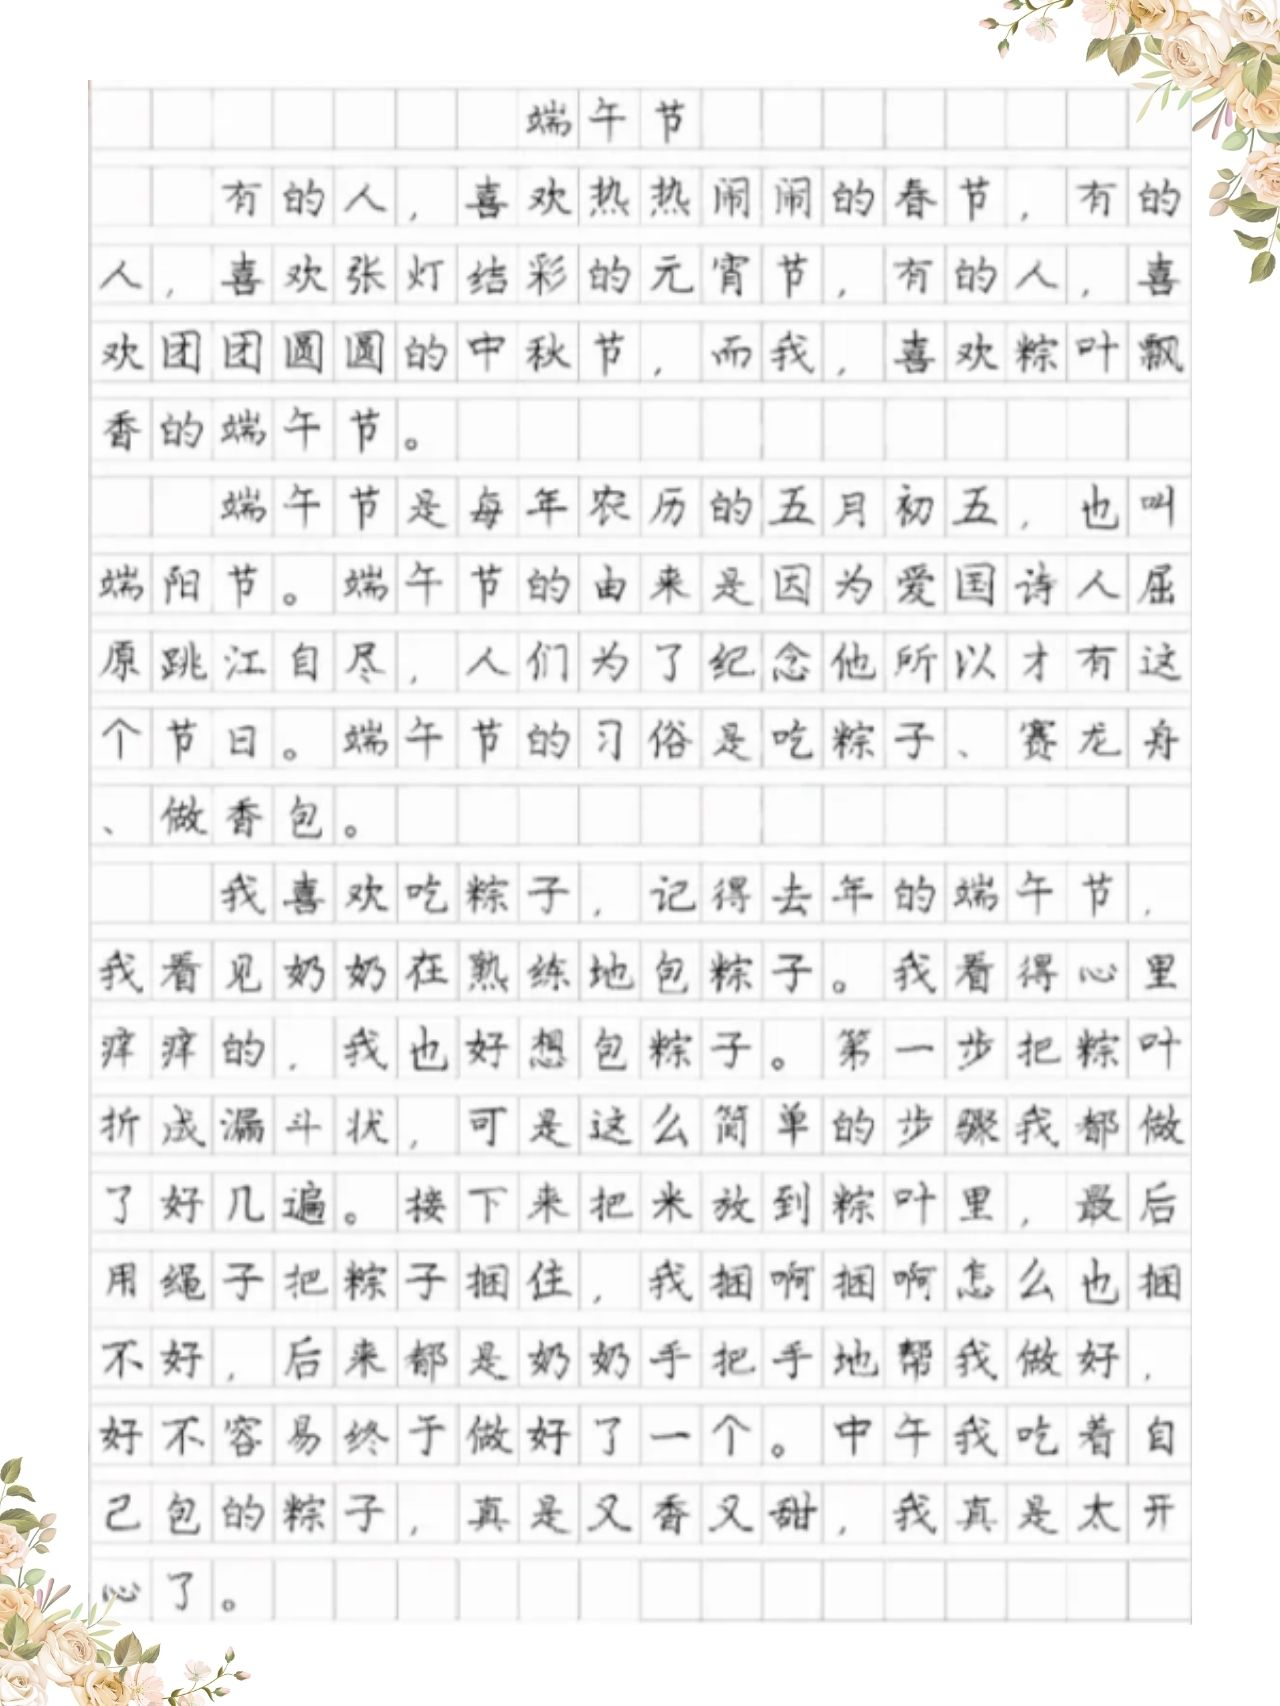 端午节
有的人，喜欢热热闹闹的春节，有的
人，喜欢张灯结彩的元宵节，有的人，喜
欢团团圆圆的中秋节，而我，喜欢粽叶飘
香的端午节。
端午节是每年农历的五月初五，也叫
端阳节。端午节的由来是因为爱国诗人屈
原跳江自尽，人们为了纪念他所以才有这
个节日。端午节的习俗是吃粽子、赛龙舟
、做香包。
我喜欢吃粽子，记得去年的端午节，
我看见奶奶在熟练地包粽子。我看得心里
痒痒的，我也好想包粽子。第一步把粽叶
折成漏斗状，可是这么简单的步骤我都做
了好几遍。接下来把米放到粽叶里，最后
用绳子把粽子捆住，我捆啊捆啊怎么也捆
不好，后来都是奶奶手把手地帮我做好，
好不容易终于做好了一个。中午我吃着自
己包的粽子，真是又香又甜，我真是太开
心了。